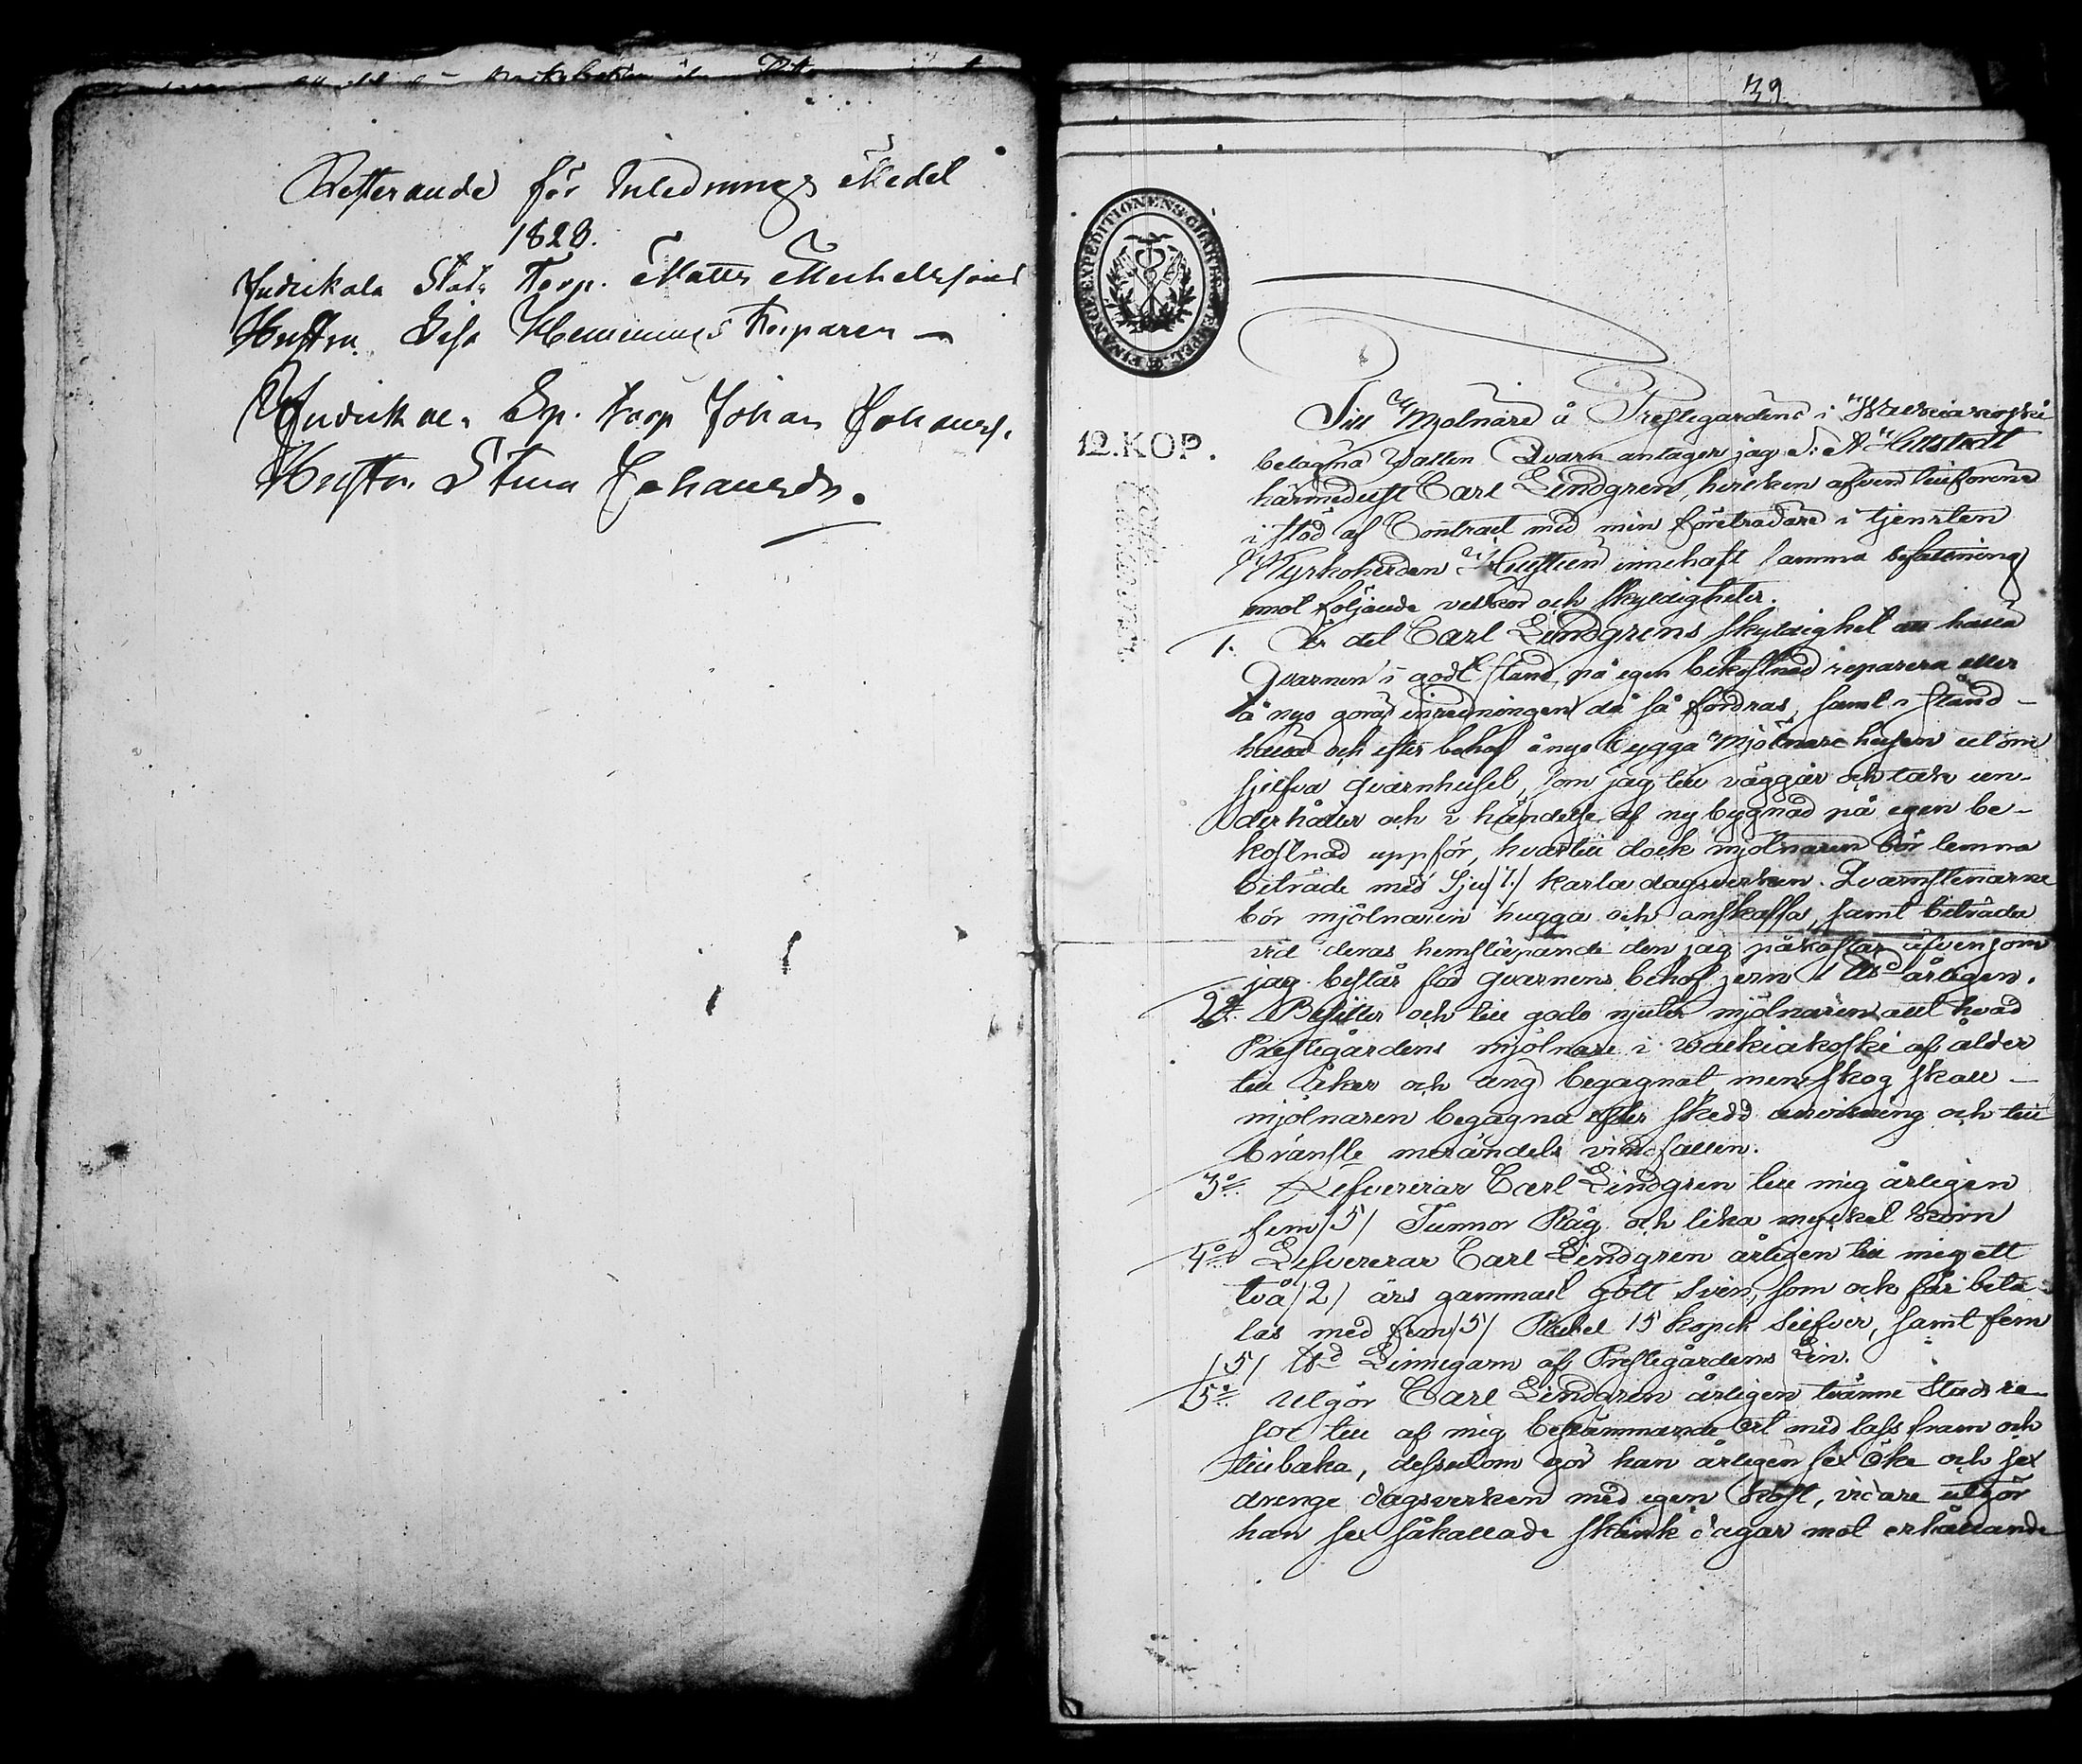 Resterande för Inlednings skedel
1828.
Stats Torp. Matts Michelsson
Hustru Hemmings Torparen
Sp. torp Johan Johanss.
Hustru Stina Johansdr.
39
FINANCE EXPEDITIONENS CHARTÆ STEMPEL
12.KOP.
Till Mjolnare å Prestegardens i Walkiakoski
belägna Vatten Qvarn antager jag S: A Hellstedt
härmedelst Carl Lindgren, hvilken afven tillforene
i stöd af Contract med min företradare i tjensten
Kyrkoherden innehaft samma befattning
emot följande vilkor och skyldigheter.
1. Är det Carl Lindgrens skyldighet att hålla
Qvarnen i godt stand, på egen bekostnad reparera eller
å nyo göra inredningen då så fordras, samt i stånd-
hålla och efter behof ånyo bygga Mjölnare husen utom
sjelfva qvarnhuset, som jag till väggar och tak un-
derhåller och i händelse af ny bygnad på egen be-
kostnad uppför, hvartill dock mjölnaren bör lemna
biträde med Sju /7./ karla dagsverken. Qvarnstenarne
bör mjölnaren hugga och anskaffa, samt biträda
vid deras hemsläpande den jag påkostar äfvensom
jag består för qvarnens behof jern 1 L℔d årligen.
2o. Besitter och till godo njuter mjölnaren allt hvad
Prestegårdens mjölnare i Walkiakoski af ålder
till åker och äng begagnat, men skog skall
mjölnaren begagna efter skedd anvisning och till
bränsle merändels vindfallen.
3o. Lefvererar Carl Lindgren till mig årligen
fem /5/ Tunnor Råg och lika myckel Korn
4o. Lefvererar Carl Lindgren årligen till mig ett
två /2/ års gammalt gött Svin, som ock får beta-
las med fem /5/ Rubel 15 kopek Silfver, samt fem
/5/ ℔d Linnegarn af Prestegårdens Lin.
5o. Utgör Carl Lindgren årligen tvänne Stads re-
sor till af mig bestämmande Ort med lass fram och
tillbaka, dessutom gör han årligen sex öke och sex
drenge dagsverken med egen kost, vidare utgör
han sex såkallade skänk dagar mot erhållande